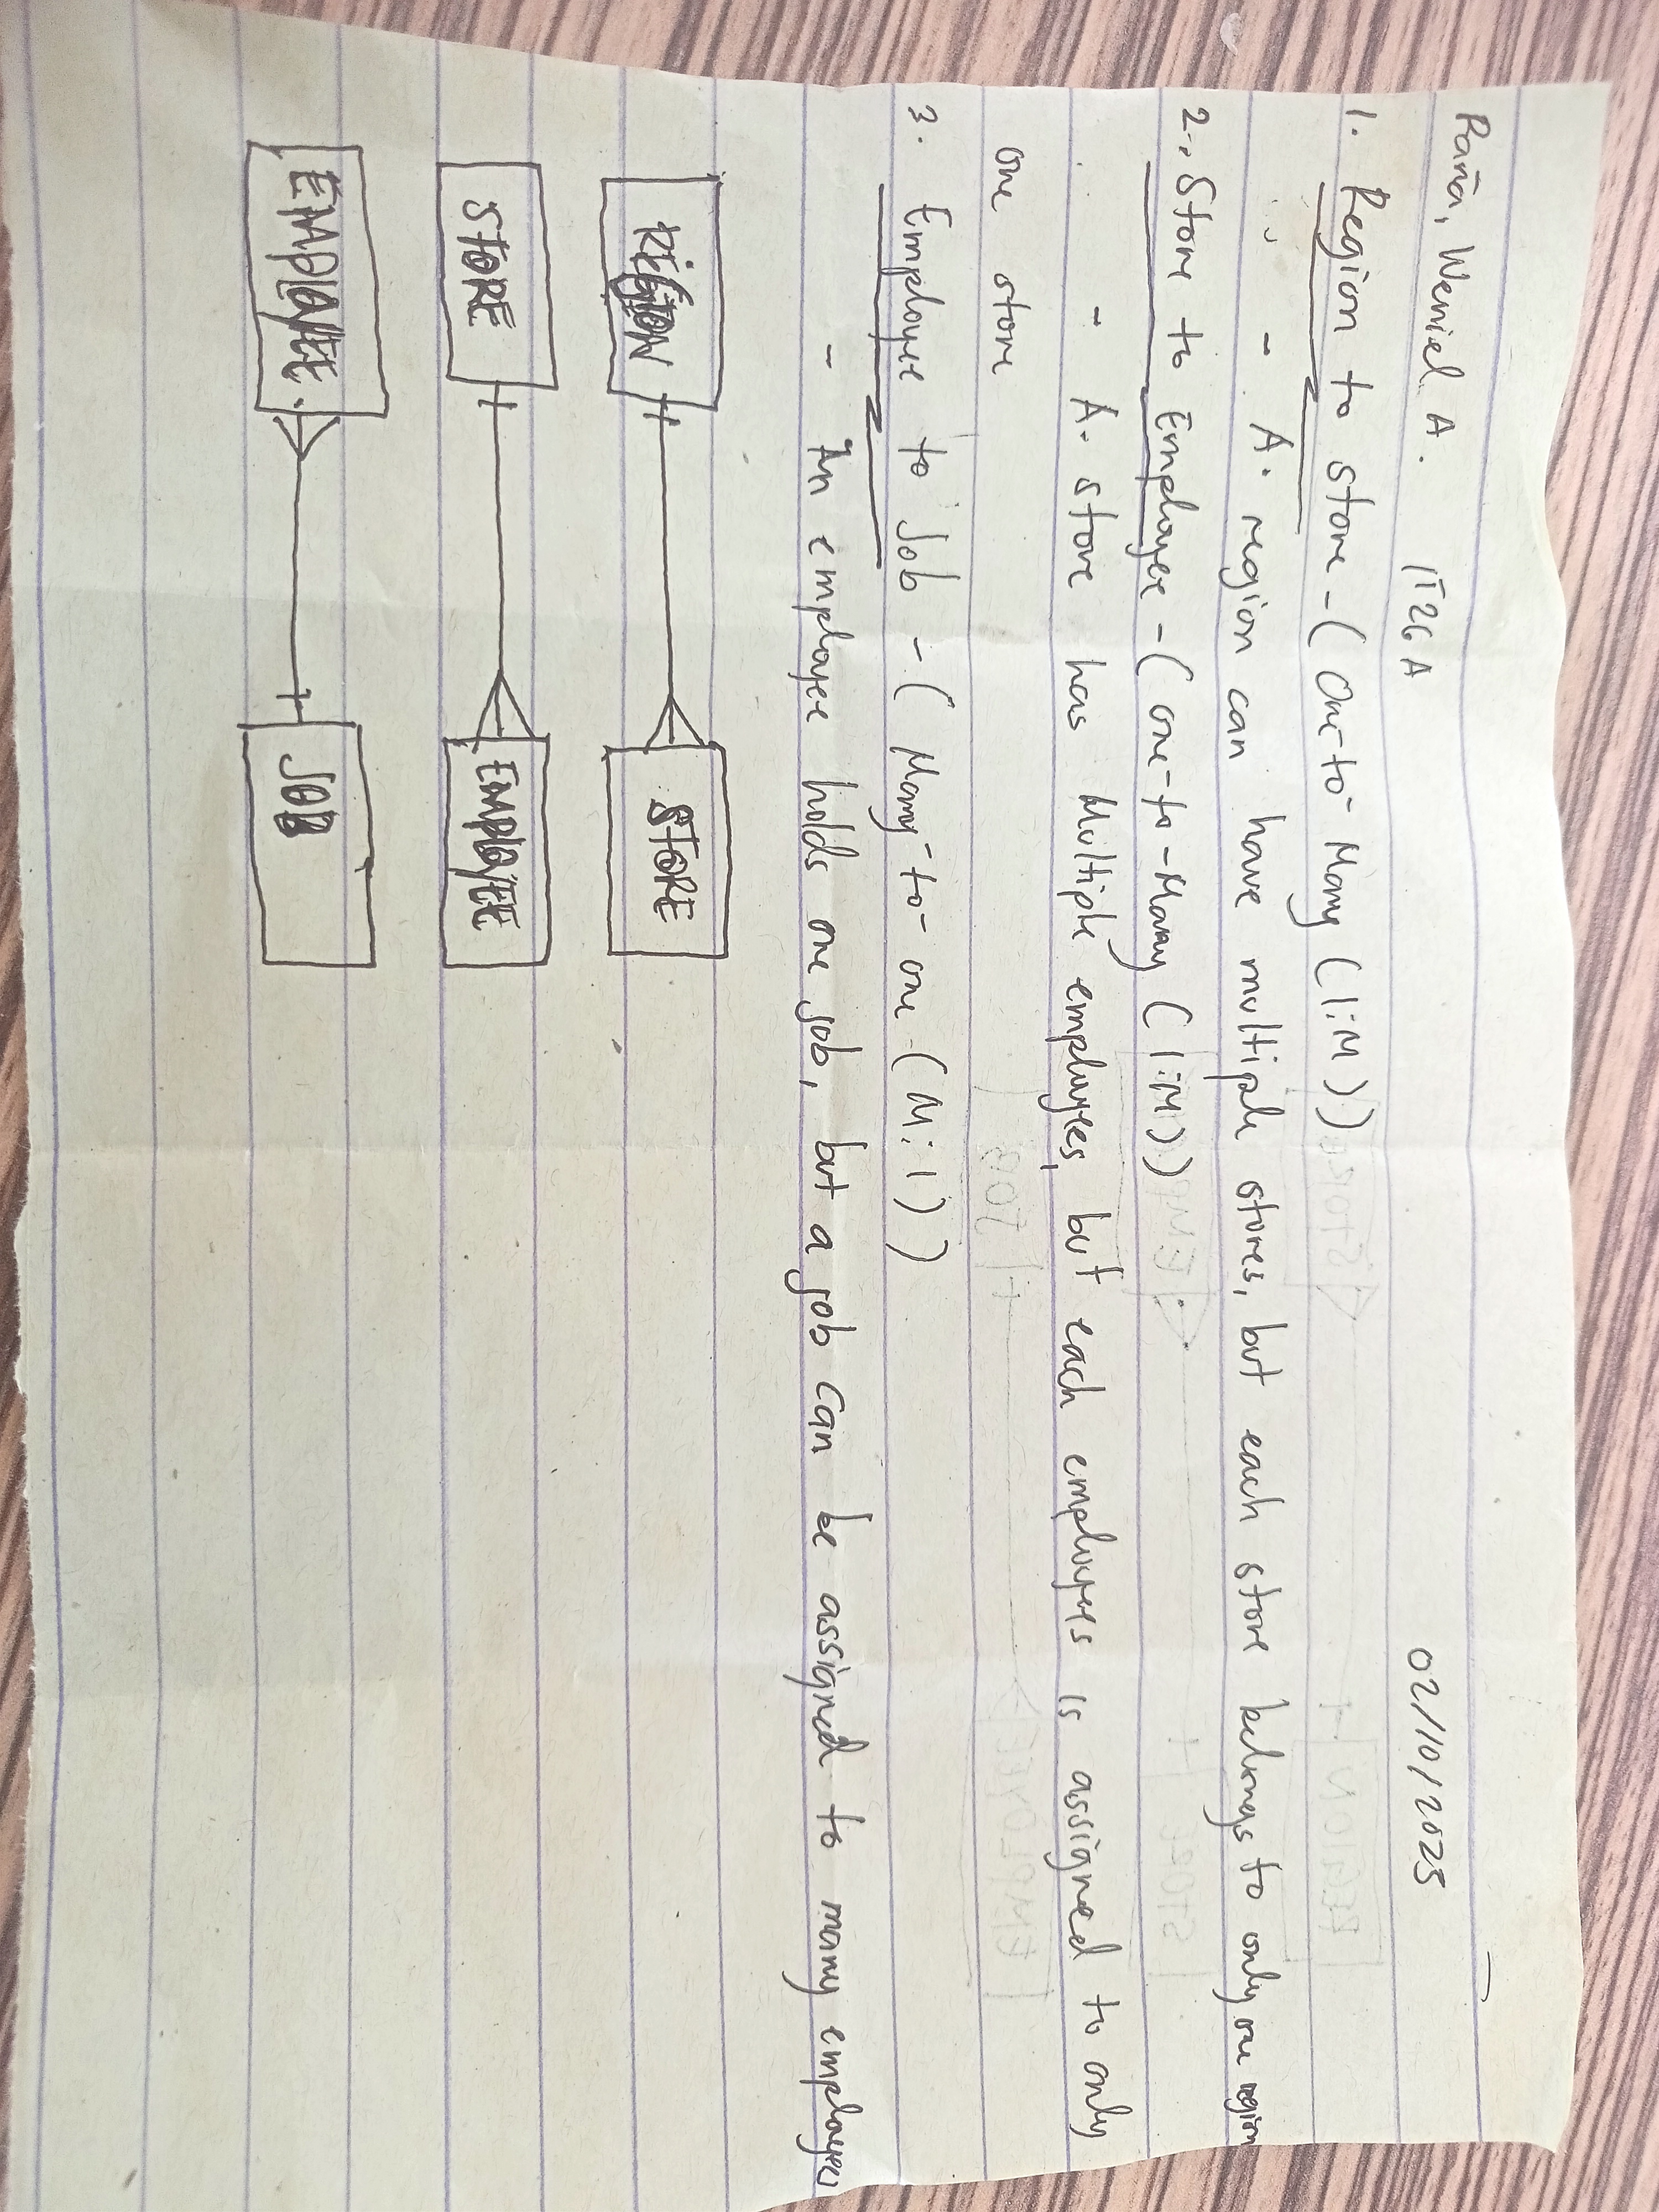 Raña, Weniel A. IT26A 02/10/2025
1. Region to store - ( One-to-Many (1:M))
- A. region can have multiple stores, but each store belongs to only one region
2.. Store to Employee - ( one-to-Many (1:M))
- A. store has Multiple employees, but each employees is assigned to only
one store
3. Employee to Job - ( Many-to-one (M:1))
- An employee holds one job, but a job can be assigned to many employees
REGION STORE
STORE EMPLOYEE
EMPLOYEE JOB